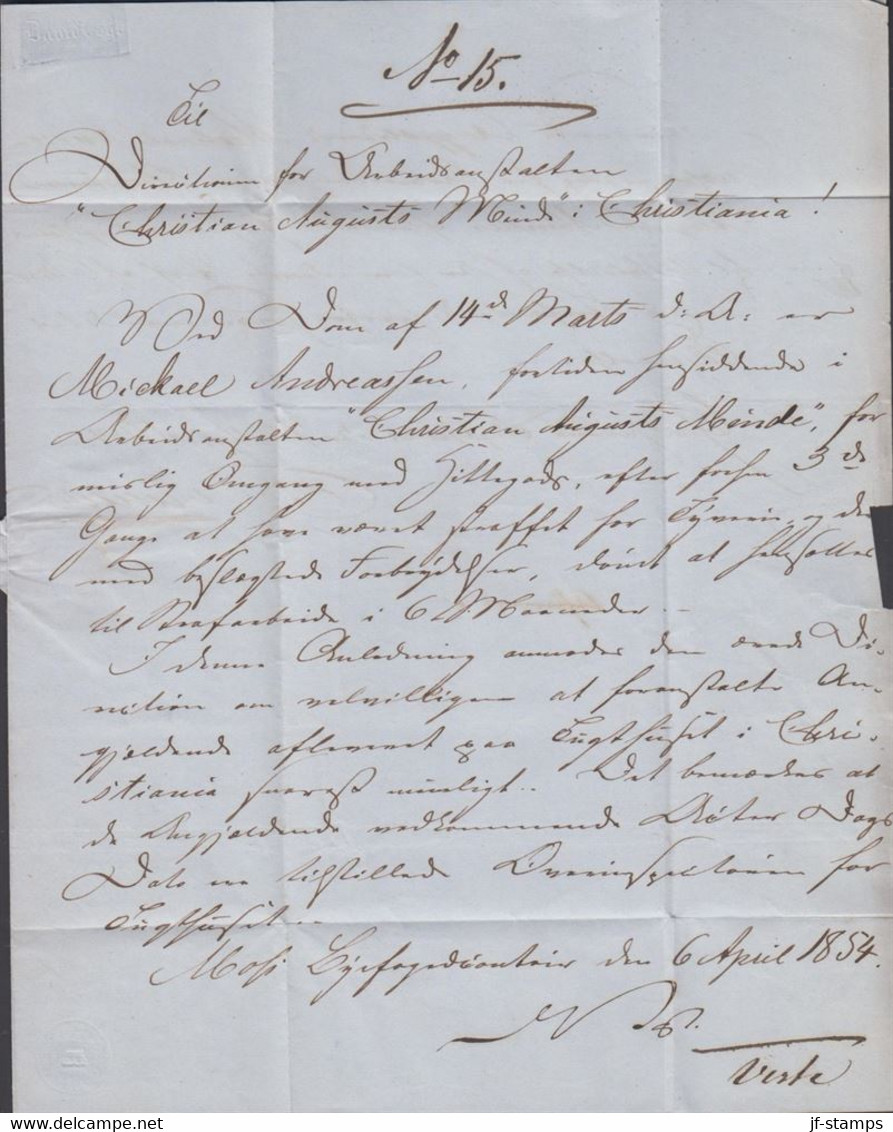 No 15.
Til
Directionen for Arbeidsanstalten
"Christian Augusts Minde" i Christiania!
Ved Dom af 14de Marts d: A: er
Mickael Andreassen, fortiden hensiddende i
Arbeidsanstalten "Christian Augusts Minde", for
mislig Omgang med Hittegods, efter forhen 3de
Gange at have været straffet for Tyveri og der
med beslægtede Forbrydelser, dømt at hensættes
til Strafarbeide i 6 Maaneder. –
I denne Anledning anmodes den ærede Di-
rection om velvilligen at foranstalte An-
gjældende afleveret paa Tugthuset i Chri-
stiania snarest muligt. Det bemærkes at
de Angjældende vedkommende Acter Dags
Dato ere tilstillede Overinspecteuren for
Tugthuset.
Moss Byefogedcontoir den 6 April 1854.
Verte
jf-stamps